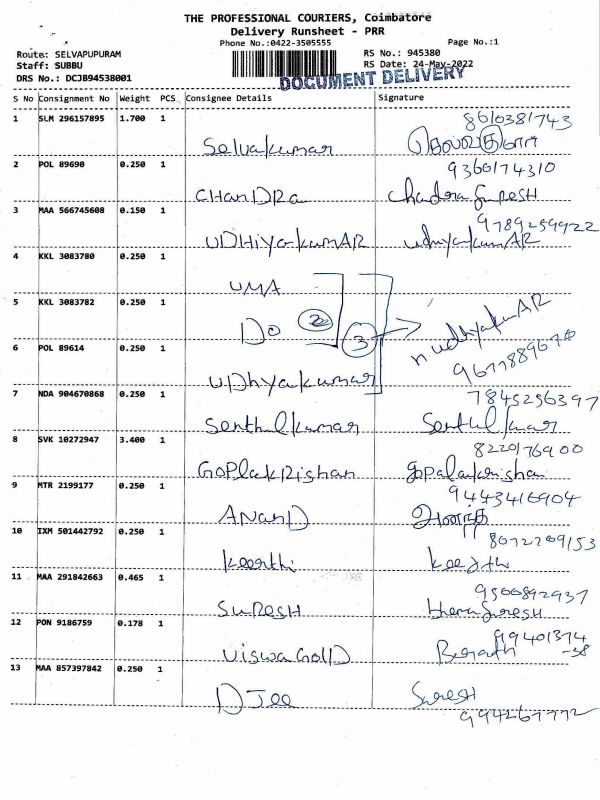 THE PROFESSIONAL COURIERS, Coimbatore
Delivery Runsheet - PRR
Phone No.:0422-3505555 Page No.:1
Route: SELVAPUPURAM RS No.: 945380
Staff: SUBBU RS Date: 24-May-2022
DRS No.: DCJB94538001 DOCUMENT DELIVERY
S No Consignment No Weight PCS Consignee Details Signature
8610381743
1 SLM 296157895 1.700 1
Selvakumar
9360174310
2 POL 89690 0.250 1
CHanDRa Chadora SureSH
3 MAA 566745608 0.150 1
9789259922
UDHiyakumAR udhyakumAR
4 KKL 3083780 0.250 1
UMA
5 KKL 3083782 0.250 1
Do 2 3 n.udhyakumAR
6 POL 89614 0.250 1
9677889670
UDhyakumar
7 NDA 904670868 0.250 1 7845256397
Senthulkumar Senthul kumar
8 SVK 10272947 3.400 1 8220176900
GoPlakRishan gopalakrishan
9 MTR 2199177 0.250 1 9443416904
ANanD ஆனந்த்
10 IXM 501442792 0.250 1 8072209153
keerthi
11 MAA 291842663 0.465 1
9500892937
SuReSH
12 PON 9186759 0.178 1 99401374
-38
ViswaGolD
13 MAA 857397842 0.250 1
DJee SureSH
994267772